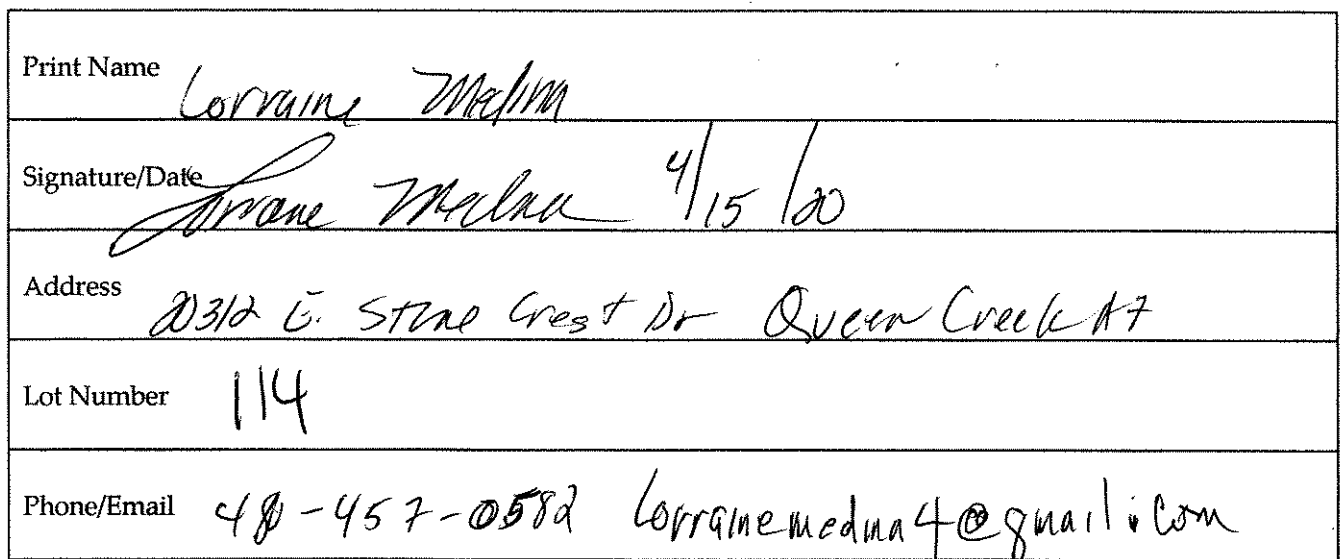 Print Name Lorraine Medina
Signature/Date Lorraine Medina 4/15/20
Address 20312 E. Stone Crest Dr Queen Creek AZ
Lot Number 114
Phone/Email 480-457-0582 lorrainemedina4@gmail.com